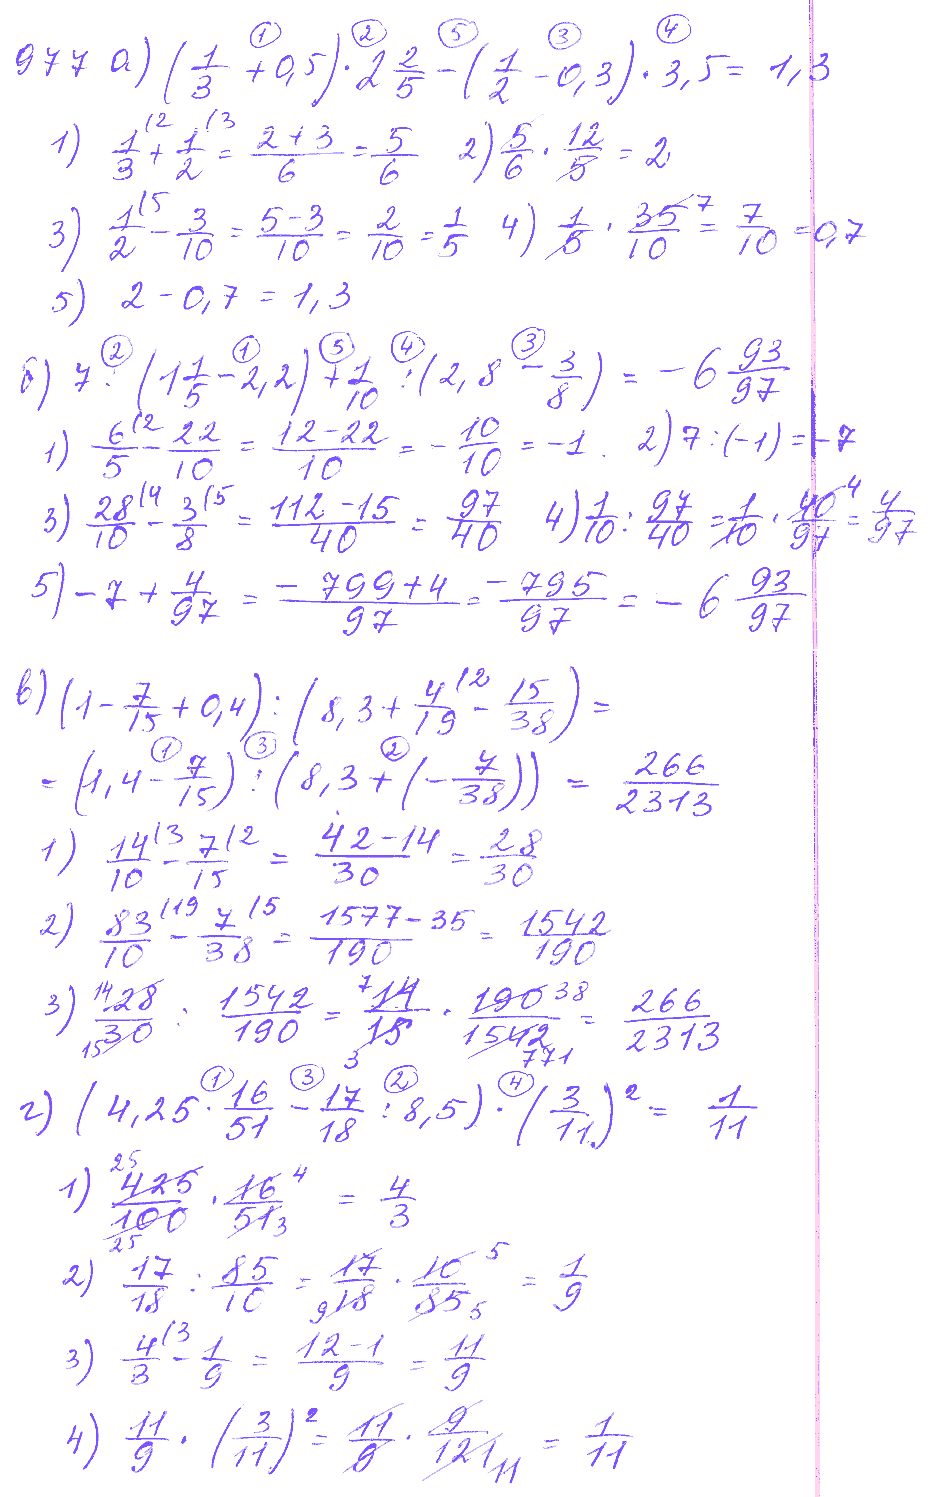 977 а) (1/3 + 0,5) · 2 2/5 − (1/2 − 0,3) · 3,5 = 1,3
1) 1/3 (2 + 1/2 (3 = (2+3)/6 = 5/6 2) 5/6 · 12/5 = 2
3) 1/2 (5 − 3/10 = (5−3)/10 = 2/10 = 1/5 4) 1/5 · 35/10 7 = 7/10 = 0,7
5) 2 − 0,7 = 1,3
б) 7 : (1 1/5 − 2,2) + 1/10 : (2,8 − 3/8) = − 6 93/97
1) 6/5 (2 − 22/10 = (12−22)/10 = − 10/10 = −1. 2) 7 : (−1) = −7
3) 28/10 (4 − 3/8 (5 = (112−15)/40 = 97/40 4) 1/10 : 97/40 = 1/10 · 40/97 4 = 4/97
5) −7 + 4/97 = (−799+4)/97 = −795/97 = − 6 93/97
в) (1 − 7/15 + 0,4) : (8,3 + 4/19 (2 − 15/38) =
= (1,4 − 7/15) : (8,3 + (− 7/38)) = 266/2313
1) 14/10 (3 − 7/15 (2 = (42−14)/30 = 28/30
2) 83/10 (19 − 7/38 (5 = (1577−35)/190 = 1542/190
3) 14 28/30 15 : 1542/190 = 7 14/15 3 · 190/1542 38 771 = 266/2313
г) (4,25 · 16/51 − 17/18 : 8,5) · (3/11)² = 1/11
1) 25 425/100 25 · 16/51 4 3 = 4/3
2) 17/18 : 85/10 = 17/18 9 · 10/85 5 5 = 1/9
3) 4/3 (3 − 1/9 = (12−1)/9 = 11/9
4) 11/9 · (3/11)² = 11/9 · 9/121 11 = 1/11